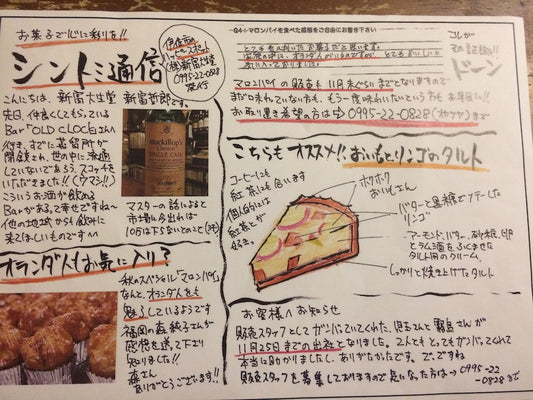 お菓子で心に彩りを!!
シントミ通信
0995-22-0828
発行
こんにちは、新富大生堂 新富哲郎です。
先日、仲良くしてもらっている
Bar "OLD CLOCK"さんへ
行き、すでに蒸留所が
閉鎖され、世の中に流通
していないであろう、スコッチを
いただきました!!(ウマシ!!)
こういうお酒が飲める
Barがあるって幸せですね〜
他の地域からも飲みに
来てほしいものです^^
Mackillop's
Choice
SINGLE CASK
マスターの話によると
市場に今出れば
10万は下らないとのこと
オランダ人もお気に入り?
秋のスペシャル「マロンパイ」
なんと、オランダ人をも
魅了しているようです
福岡の森純子さんが
感想を送って下より
知りました!!
森さん
ありがとうございます!!
Q4:マロンパイを食べた感想をご自由にお書き下さい
コレが
その証拠!!
ドーン
マロンパイの販売も11月末ぐらいまでとなりますので
まだ口未れていない方も、もう一度味わいたいという方も お早目に!!
お取り置き希望の方は⇒0995-22-0828 まで
こちらも オススメ!! おいもとリンゴのタルト
コーヒーにも
紅茶にも合います
個人的には
紅茶とが
好き。
ホクホク
おいもさん
バターと黒糖でソテーした
リンゴ
アーモンド、バター、砂糖、卵
とラム酒をふくませた
タルト用のクリーム
しっかりと焼き上げたタルト
お客様へお知らせ
販売スタッフとしてガンバっていてくれた、児玉さんと霧島さんが
11月25日までの出社となりました。2人とも とってもガンバってくれて
本当に助かりましたし、ありがたかったです。でですね
販売スタッフを募集しておりますので気になった方は→0995-22
-0828まで